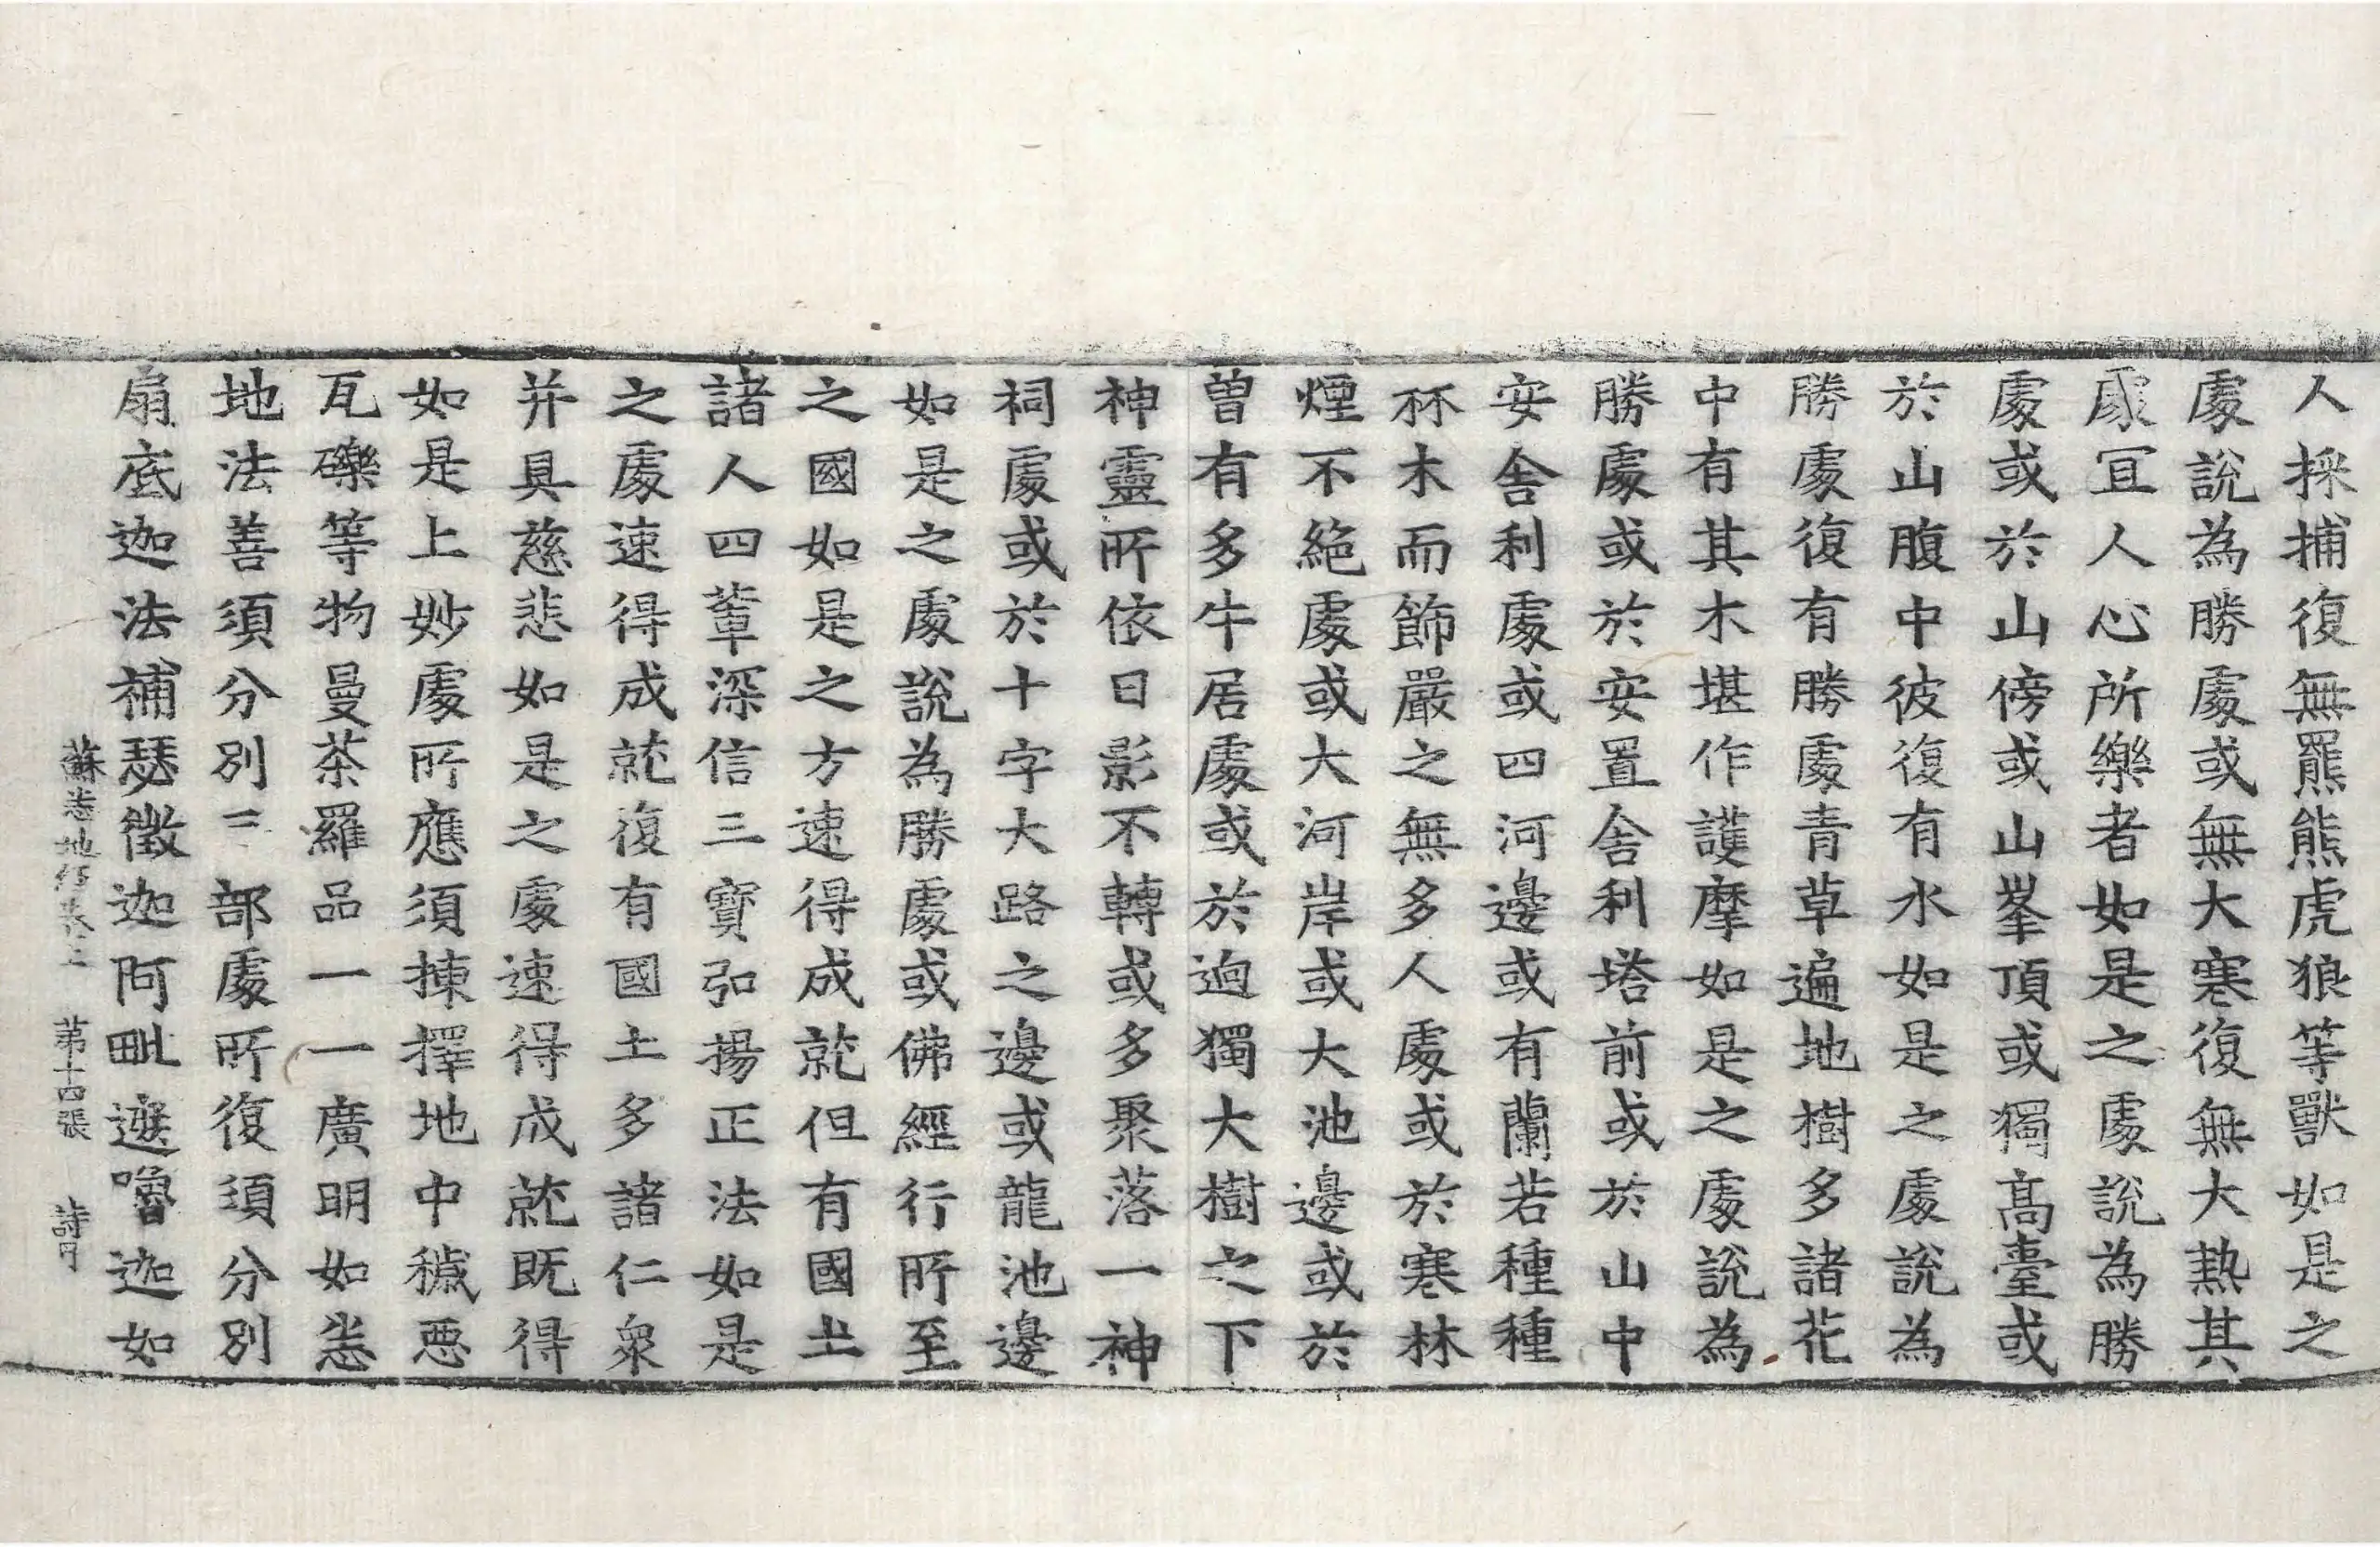 人採捕復無羆熊虎狼等獸如是之
處說為勝處或無大寒復無大熱其
處冝人心所樂者如是之處說為勝
處或於山傍或山峯頂或獨髙臺或
於山腹中彼復有水如是之處說為
勝處復有勝處青草遍地樹多諸花
中有其木堪作護摩如是之處說為
勝處或於安置舍利塔前或於山中
安舍利處或四河邊或有蘭若種種
林木而飾嚴之無多人處或於寒林
煙不絕處或大河岸或大池邊或於
曽有多牛居處或於逈獨大樹之下
神靈所依日影不轉或多聚落一神
祠處或於十字大路之邊或龍池邊
如是之處說為勝處或佛經行所至
之國如是之方速得成就但有國土
諸人四輩深信三寶弘揚正法如是
之處速得成就復有國土多諸仁衆
并具慈悲如是之處速得成就既得
如是上妙處所應須揀擇地中穢惡
瓦礫等物曼茶羅品一一廣明如悉
地法善須分別三部處所復須分別
扇底迦法補瑟徵迦阿毗遮嚕迦如
蘇悉地經卷上 第十四張 詩